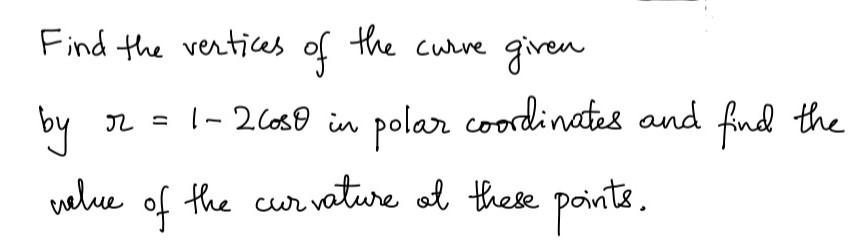 Find the vertices of the curve given
by r = 1 - 2 Cosθ in polar coordinates and find the
value of the curvature at these points.